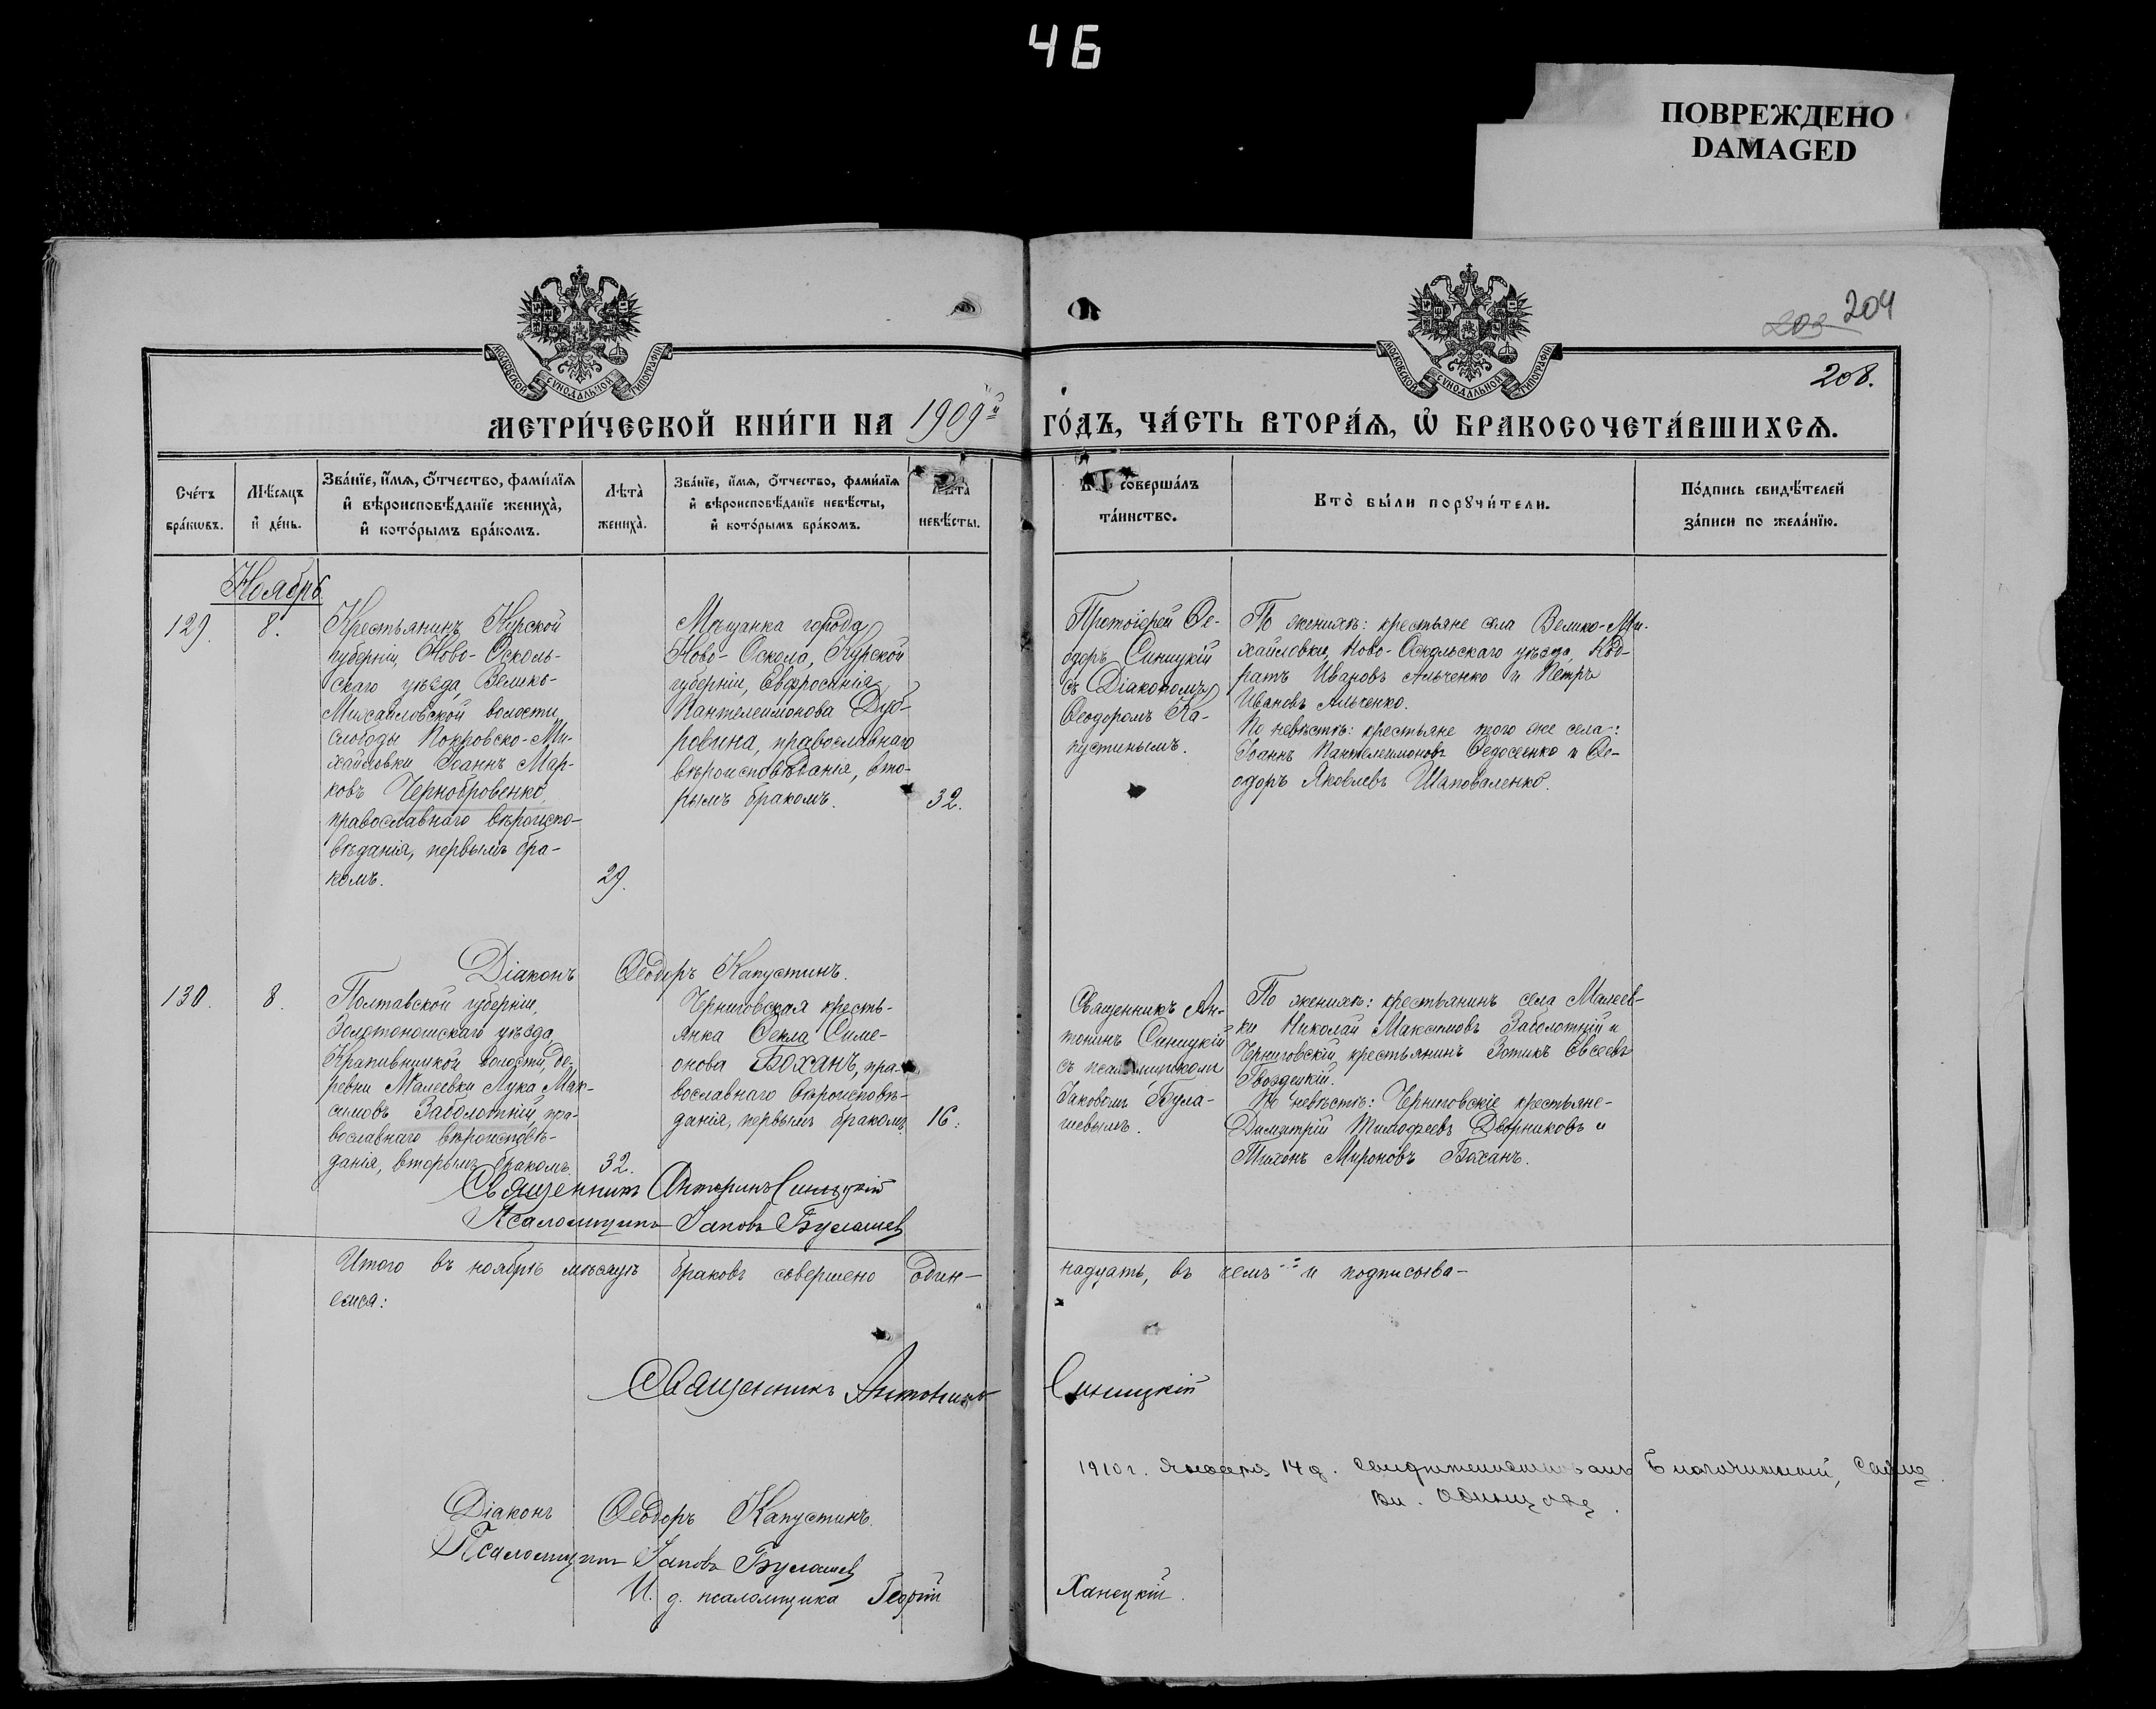 46
ПОВРЕЖДЕНО
DAMAGED
203 204
208.
МОСКОВСКОЙ СѴНОДАЛЬНОЙ ТИПОГРАФІИ
МОСКОВСКОЙ СѴНОДАЛЬНОЙ ТИПОГРАФІИ
МЕТРИ́ЧЕСКОЙ КНИ́ГИ НА 1909й ГО́ДЪ, ЧА́СТЬ ВТОРА́Ѧ, Ѡ҆ БРАКОСОЧЕТА́ВШИХСѦ.
Сче́тъ
бра́кѡвъ.
Мѣ́сяцъ
и҆ де́нь.
Зва́нїе, и҆́мѧ, ѻ҆́тчество, фами́лїѧ
и҆ вѣроисповѣ́данїе жениха̀,
и҆ кото́рымъ бра́комъ.
Лѣта̀
жениха̀.
Зва́нїе, и҆́мѧ, ѻ҆́тчество, фами́лїѧ
и҆ вѣроисповѣ́данїе невѣ́сты,
и҆ кото́рымъ бра́комъ.
Лѣта̀
невѣ́сты.
соверша́лъ
та́инство.
Кто̀ бы́ли порꙋчи́тели.
По́дпись свидѣ́телей
за́писи по жела́нїю.
Ноябрь
129.
8.
Крестьянинъ Курской
губерніи, Ново-Осколь-
скаго уѣзда, Велико-
Михайловской волости,
слободы Покровско-Ми-
хайловки Іоаннъ Мар-
ковъ Чернобровенко,
православнаго вѣроиспо-
вѣданія, первымъ бра-
комъ.
29.
Мѣщанка города
Ново-Оскола, Курской
губерніи, Евфросинія
Пантелеимонова Дуб-
ровина, православнаго
вѣроисповѣданія, вто-
рымъ бракомъ.
32.
Протоіерей Ѳе-
одоръ Синицкій
съ Діакономъ
Ѳеодоромъ Ка-
пустинымъ.
По женихѣ: крестьяне села Велико-Ми-
хайловки, Ново-Оскольскаго уѣзда, Код-
ратъ Ивановъ Ильченко и Петръ
Ивановъ Ильченко.
По невѣстѣ: крестьяне того же села:
Іоаннъ Пантелеимоновъ Ѳедосеенко и Ѳе-
одоръ Яковлевъ Шаповаленко.
Діаконъ Ѳеодоръ Капустинъ.
130.
8.
Полтавской губерніи,
Золотоношскаго уѣзда,
Крапивницкой волости, де-
ревни Малеевки Лука Мак-
симовъ Заболотній, пра-
вославнаго вѣроисповѣ-
данія, вторымъ бракомъ.
32.
Черниговская кресть-
янка Ѳекла Симе-
онова Боханъ, пра-
вославнаго вѣроисповѣ-
данія, первымъ бракомъ.
16.
Священникъ Ан-
тонинъ Синицкій
съ псаломщикомъ
Іаковомъ Була-
шевымъ.
По женихѣ: крестьянинъ села Малеев-
ки Николай Максимовъ Заболотній и
Черниговскій крестьянинъ Зотикъ Евсеевъ
Гвоздецкій.
По невѣстѣ: Черниговскіе крестьяне-
Димитрій Тимофеевъ Дворниковъ и
Тихонъ Мироновъ Боханъ.
Священникъ Антонинъ Синицкій
Псаломщикъ Іаковъ Булашевъ
Итого въ ноябрѣ мѣсяцѣ браковъ совершено один-надцать, въ чемъ и подписыва-
емся:
Священникъ Антонинъ Синицкій
1910 г. Января 14 д. свидѣтельствовалъ Благочинный,
Діаконъ Ѳеодоръ Капустинъ.
Псаломщикъ Іаковъ Булашевъ
И. д. псаломщика Георгій Ханецкій.